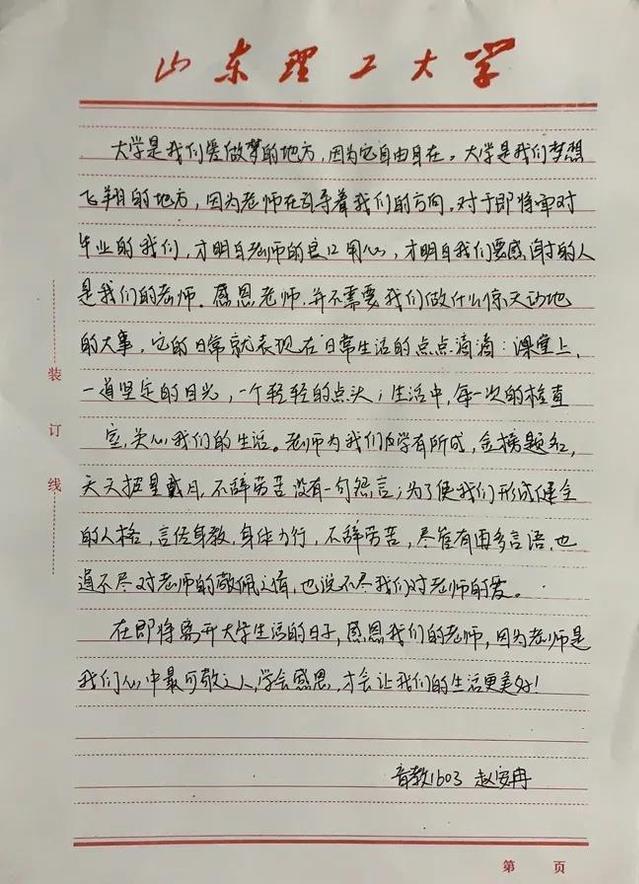 山东理工大学
大学是我们爱做梦的地方，因为它自由自在。大学是我们梦想
飞翔的地方，因为老师在引导着我们的方向。对于即将面对
毕业的我们，才明白老师的良口用心，才明白我们要感谢的人
是我们的老师。感恩老师，并不需要我们做什么惊天动地
的大事，它的日常就表现在日常生活的点点滴滴：课堂上，
一道坚定的目光，一个轻轻的点头；生活中，每一次的检查
室，关心我们的生活。老师为我们的学有所成，金榜题名，
天天披星戴月，不辞劳苦没有一句怨言；为了使我们形成健全
的人格，言传身教，身体力行，不辞劳苦，尽管有再多言语，也
道不尽对老师的敬佩之情，也说不尽我们对老师的爱。
在即将离开大学生活的日子，感恩我们的老师，因为老师是
我们心中最可敬之人，学会感恩，才会让我们的生活更美好！
音教1603 赵安冉
装
订
线
第 页